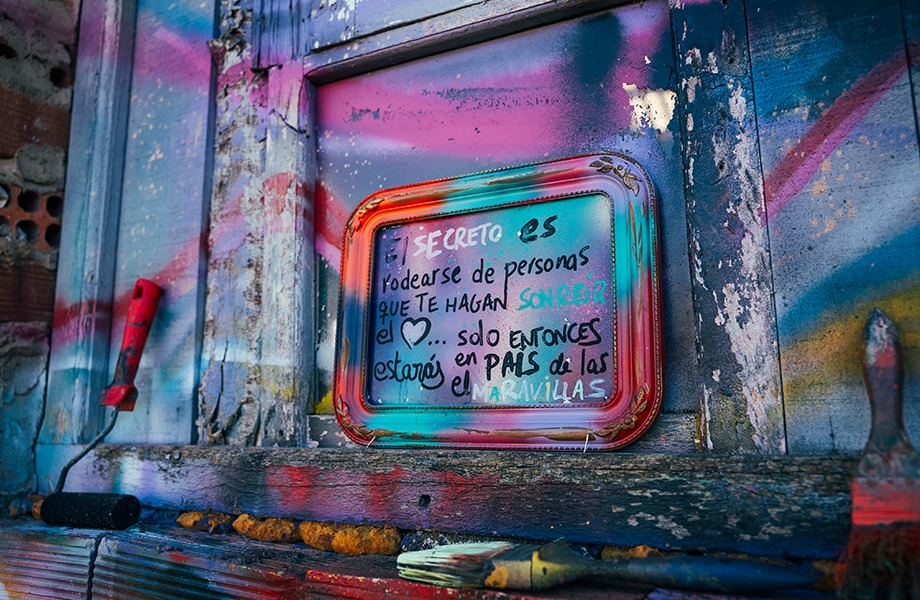 El SECRETO es
rodearse de personas
QUE TE HAGAN SONREÍR
el ♡... solo ENTONCES
estarás en PAÍS de las
el MARAVILLAS